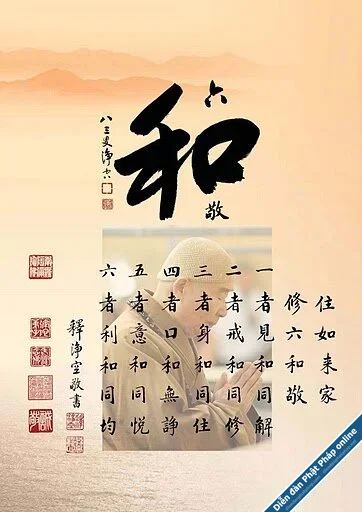 六
和
敬
八三叟淨空
住如来家
修六和敬
一者見和同解
二者戒和同修
三者身和同住
四者口和無諍
五者意和同悦
六者利和同均
釋淨空敬書
Diễn đàn Phật Pháp online